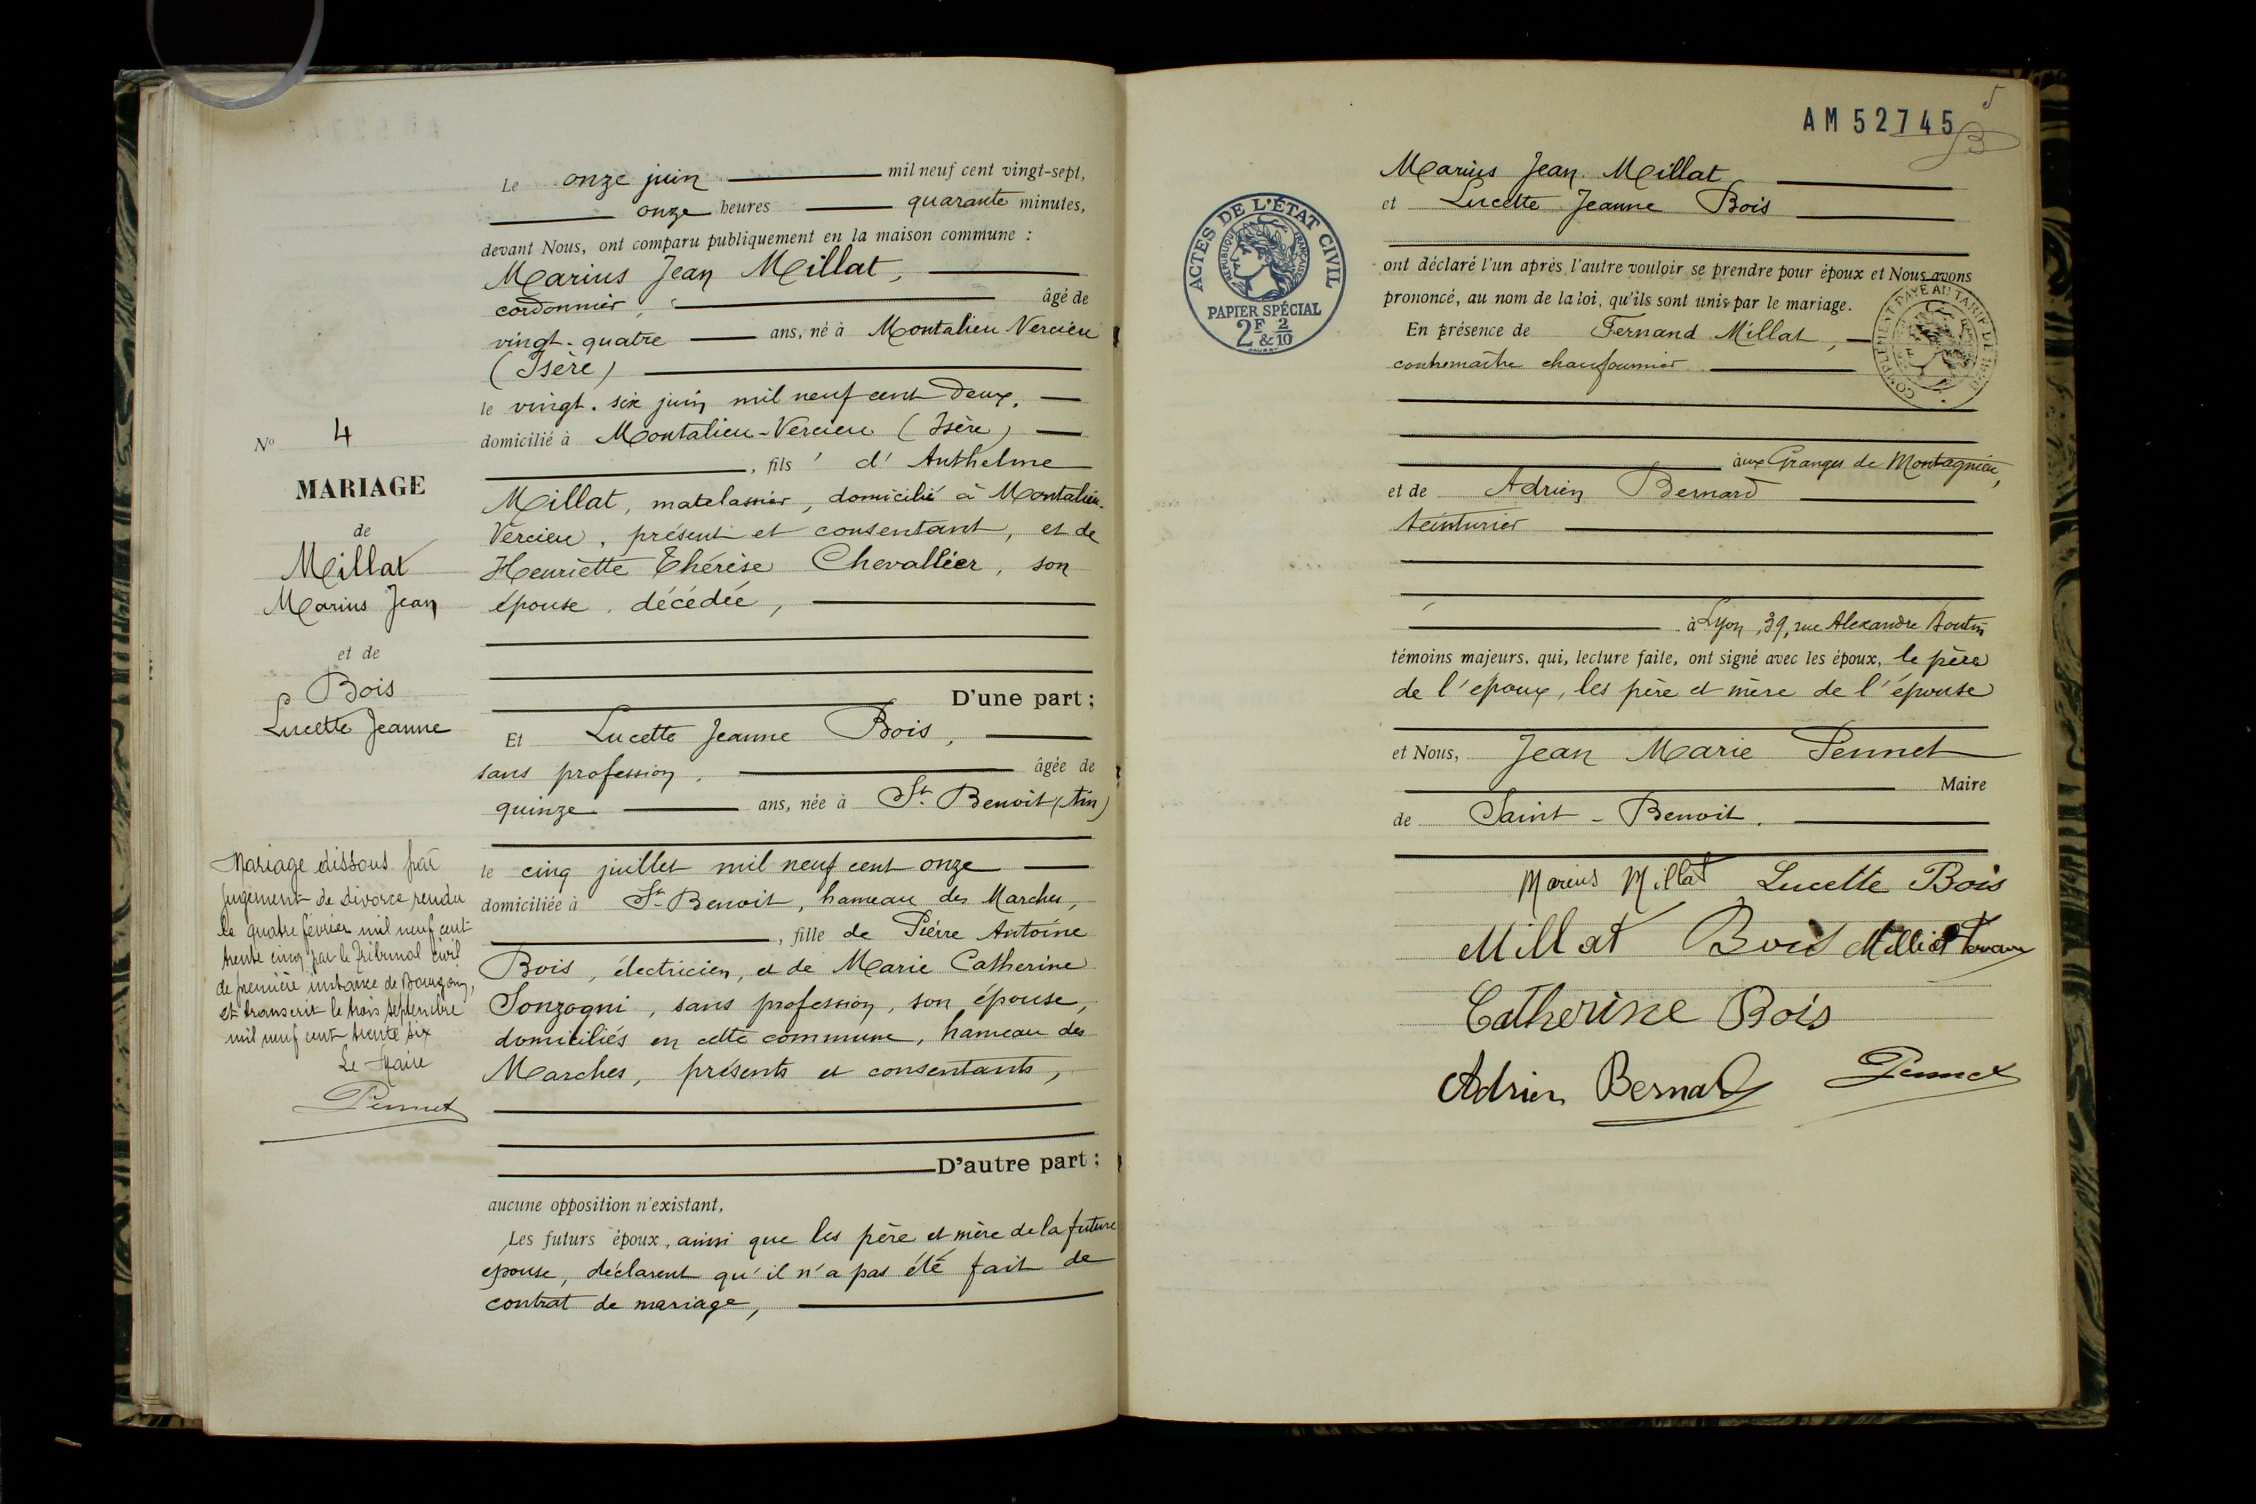 Le onze juin mil neuf cent vingt-sept,
onze heures quarante minutes,
devant Nous, ont comparu publiquement en la maison commune :
Marius Jean Millat,
cordonnier, âgé de
vingt-quatre ans, né à Montalieu Vercieu
(Isère)
le vingt-six juin mil neuf cent deux,
domicilié à Montalieu-Vercieu (Isère)
, fils d'Anthelme
Millat, matelassier, domicilié à Montalieu-
Vercieu, présent et consentant, et de
Henriette Thérèse Chevallier, son
épouse, décédée,
D'une part ;
Et Lucette Jeanne Bois,
sans profession, âgée de
quinze ans, née à St. Benoit (Ain)
le cinq juillet mil neuf cent onze
domiciliée à St-Benoit, hameau des Marches,
, fille de Pierre Antoine
Bois, électricien, et de Marie Catherine
Sonzogni, sans profession, son épouse,
domiciliés en cette commune, hameau des
Marches, présents et consentants,
D'autre part ;
aucune opposition n'existant,
Les futurs époux, ainsi que les père et mère de la future
épouse, déclarent qu'il n'a pas été fait de
contrat de mariage,
No 4
MARIAGE
de
Millat
Marius Jean
et de
Bois
Lucette Jeanne
Mariage dissous par
jugement de divorce rendu
le quatre février mil neuf cent
trente cinq par le Tribunal civil
de première instance de Bourgoin,
et transcrit le trois septembre
mil neuf cent trente six
Le Maire
Pennet
5
AM 52745
Marius Jean Millat
et Lucette Jeanne Bois
ont déclaré l'un après l'autre vouloir se prendre pour époux et Nous avons
prononcé, au nom de la loi, qu'ils sont unis par le mariage.
En présence de Fernand Millat,
contremaître chaufournier
aux Granges de Montagnieu,
et de Adrien Bernard
teinturier
à Lyon, 39, rue Alexandre Boutin
témoins majeurs, qui, lecture faite, ont signé avec les époux, le père
de l'époux, les père et mère de l'épouse
et Nous, Jean Marie Pennet
Maire
de Saint-Benoit.
Marius Millat Lucette Bois
Millat Bois Millat
Catherine Bois
Adrien Bernard Pennet
ACTES DE L'ÉTAT CIVIL
RÉPUBLIQUE FRANÇAISE
PAPIER SPÉCIAL
2F & 2/10
COMPLÉMENT PAYÉ AU TARIF DE